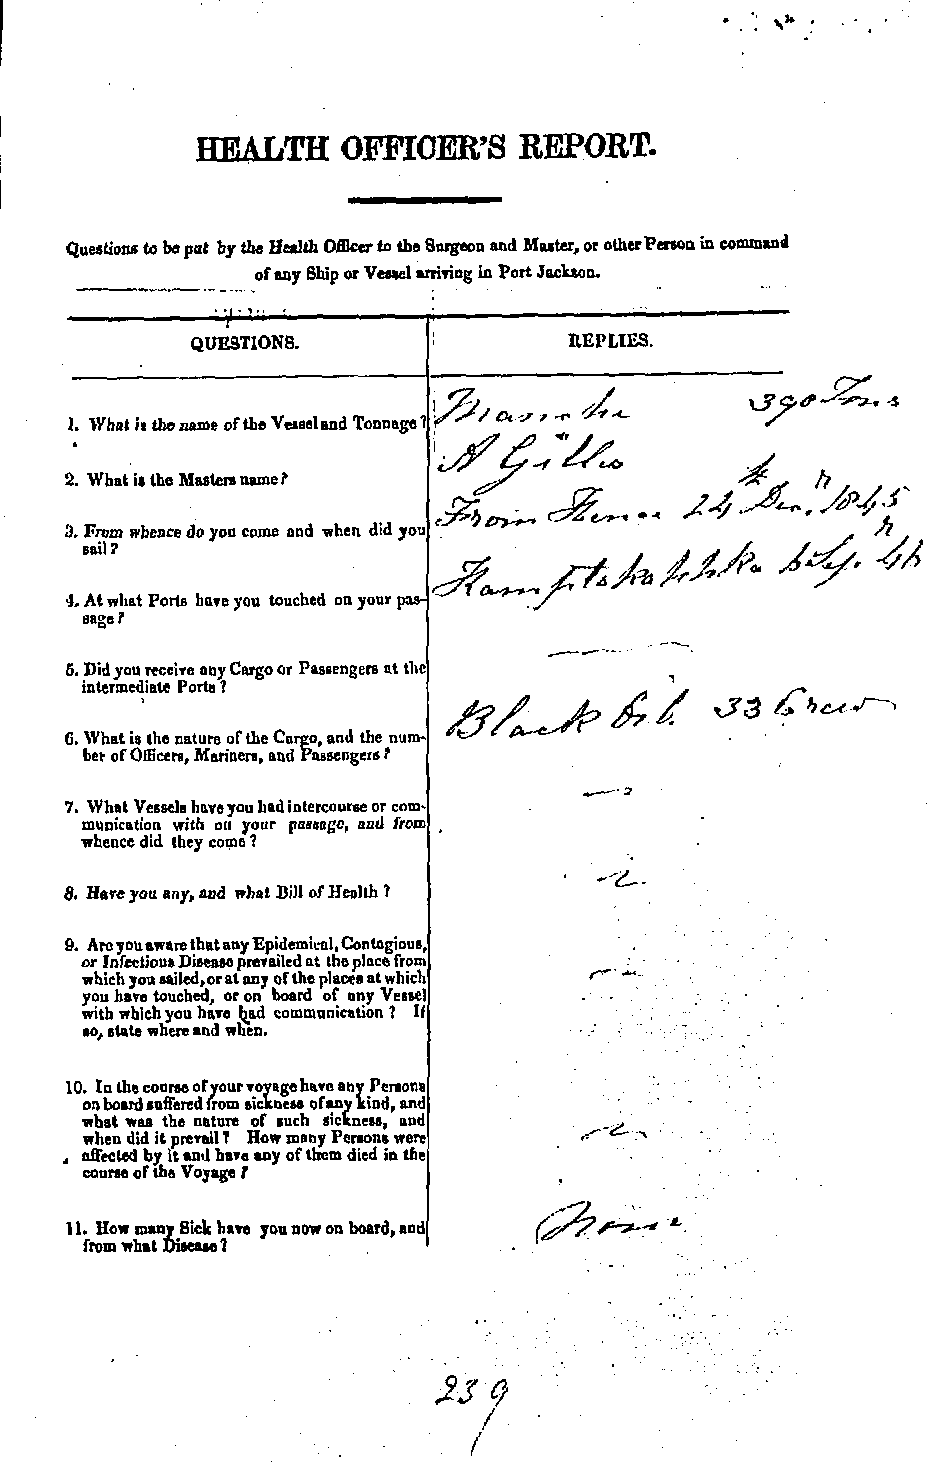 HEALTH OFFICER'S REPORT.
Questions to be put by the Health Officer to the Surgeon and Master, or other Person in command
of any Ship or Vessel arriving in Port Jackson.
QUESTIONS. REPLIES.
1. What is the name of the Vessel and Tonnage? Manche 390 Tons
2. What is the Masters name? A Gilles
3. From whence do you come and when did you From 24 Decr. 1845
sail?
4. At what Ports have you touched on your pas-
sage?
5. Did you receive any Cargo or Passengers at the
intermediate Ports?
6. What is the nature of the Cargo, and the num- Black Oil. 33 Crew
ber of Officers, Mariners, and Passengers?
7. What Vessels have you had intercourse or com-
munication with on your passage, and from
whence did they come?
8. Have you any, and what Bill of Health?
9. Are you aware that any Epidemical, Contagious,
or Infectious Disease prevailed at the place from
which you sailed, or at any of the places at which
you have touched, or on board of any Vessel
with which you have had communication? If
so, state where and when.
10. In the course of your voyage have any Persons
on board suffered from sickness of any kind, and
what was the nature of such sickness, and
when did it prevail? How many Persons were
affected by it and have any of them died in the
course of the Voyage?
11. How many Sick have you now on board, and None
from what Disease?
239